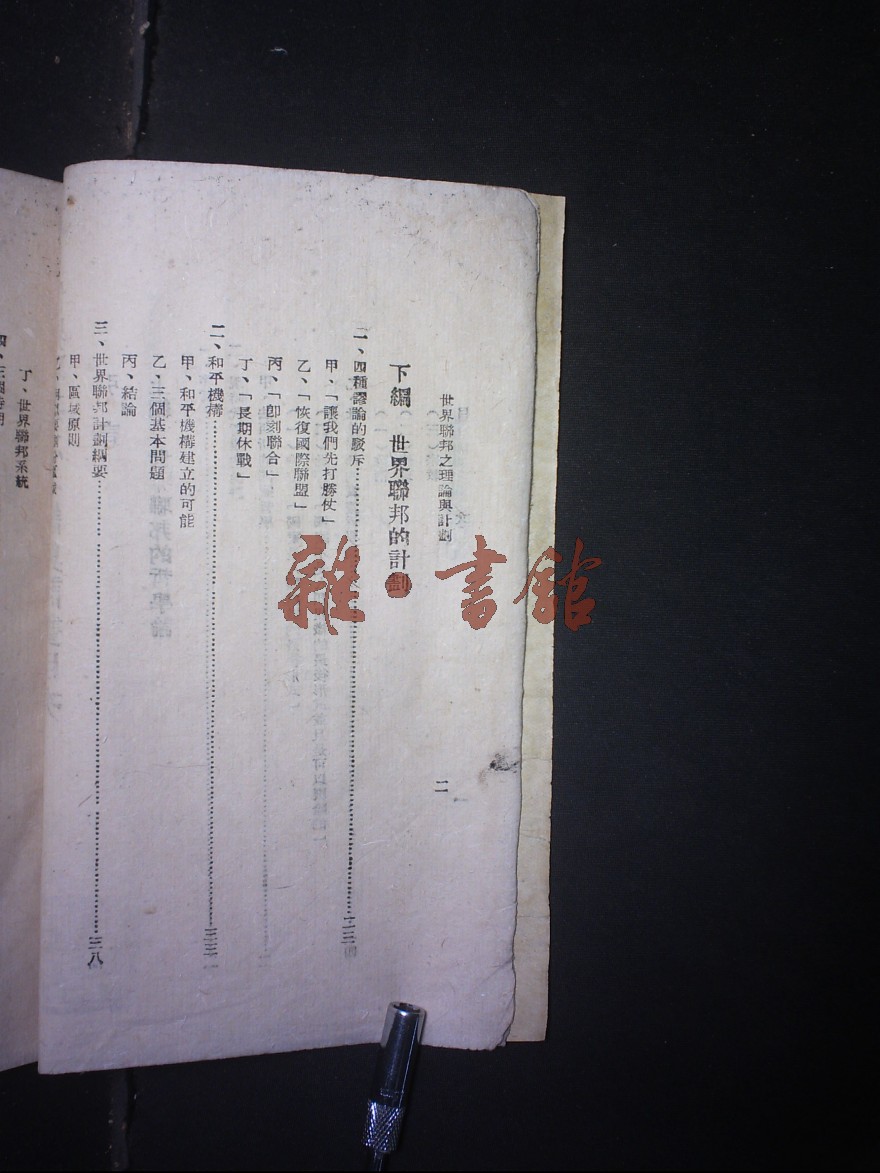 世界聯邦之理論與計劃
二
下編　世界聯邦的計劃
一、四種謬論的駁斥
甲、「讓我們先打勝仗」
乙、「恢復國際聯盟」
丙、「卽刻聯合」
丁、「長期休戰」
二、和平機構
甲、和平機構建立的可能
乙、三個基本問題
丙、結論
三、世界聯邦計劃綱要……二八
甲、區域原則
丁、世界聯邦系統
雜·書館